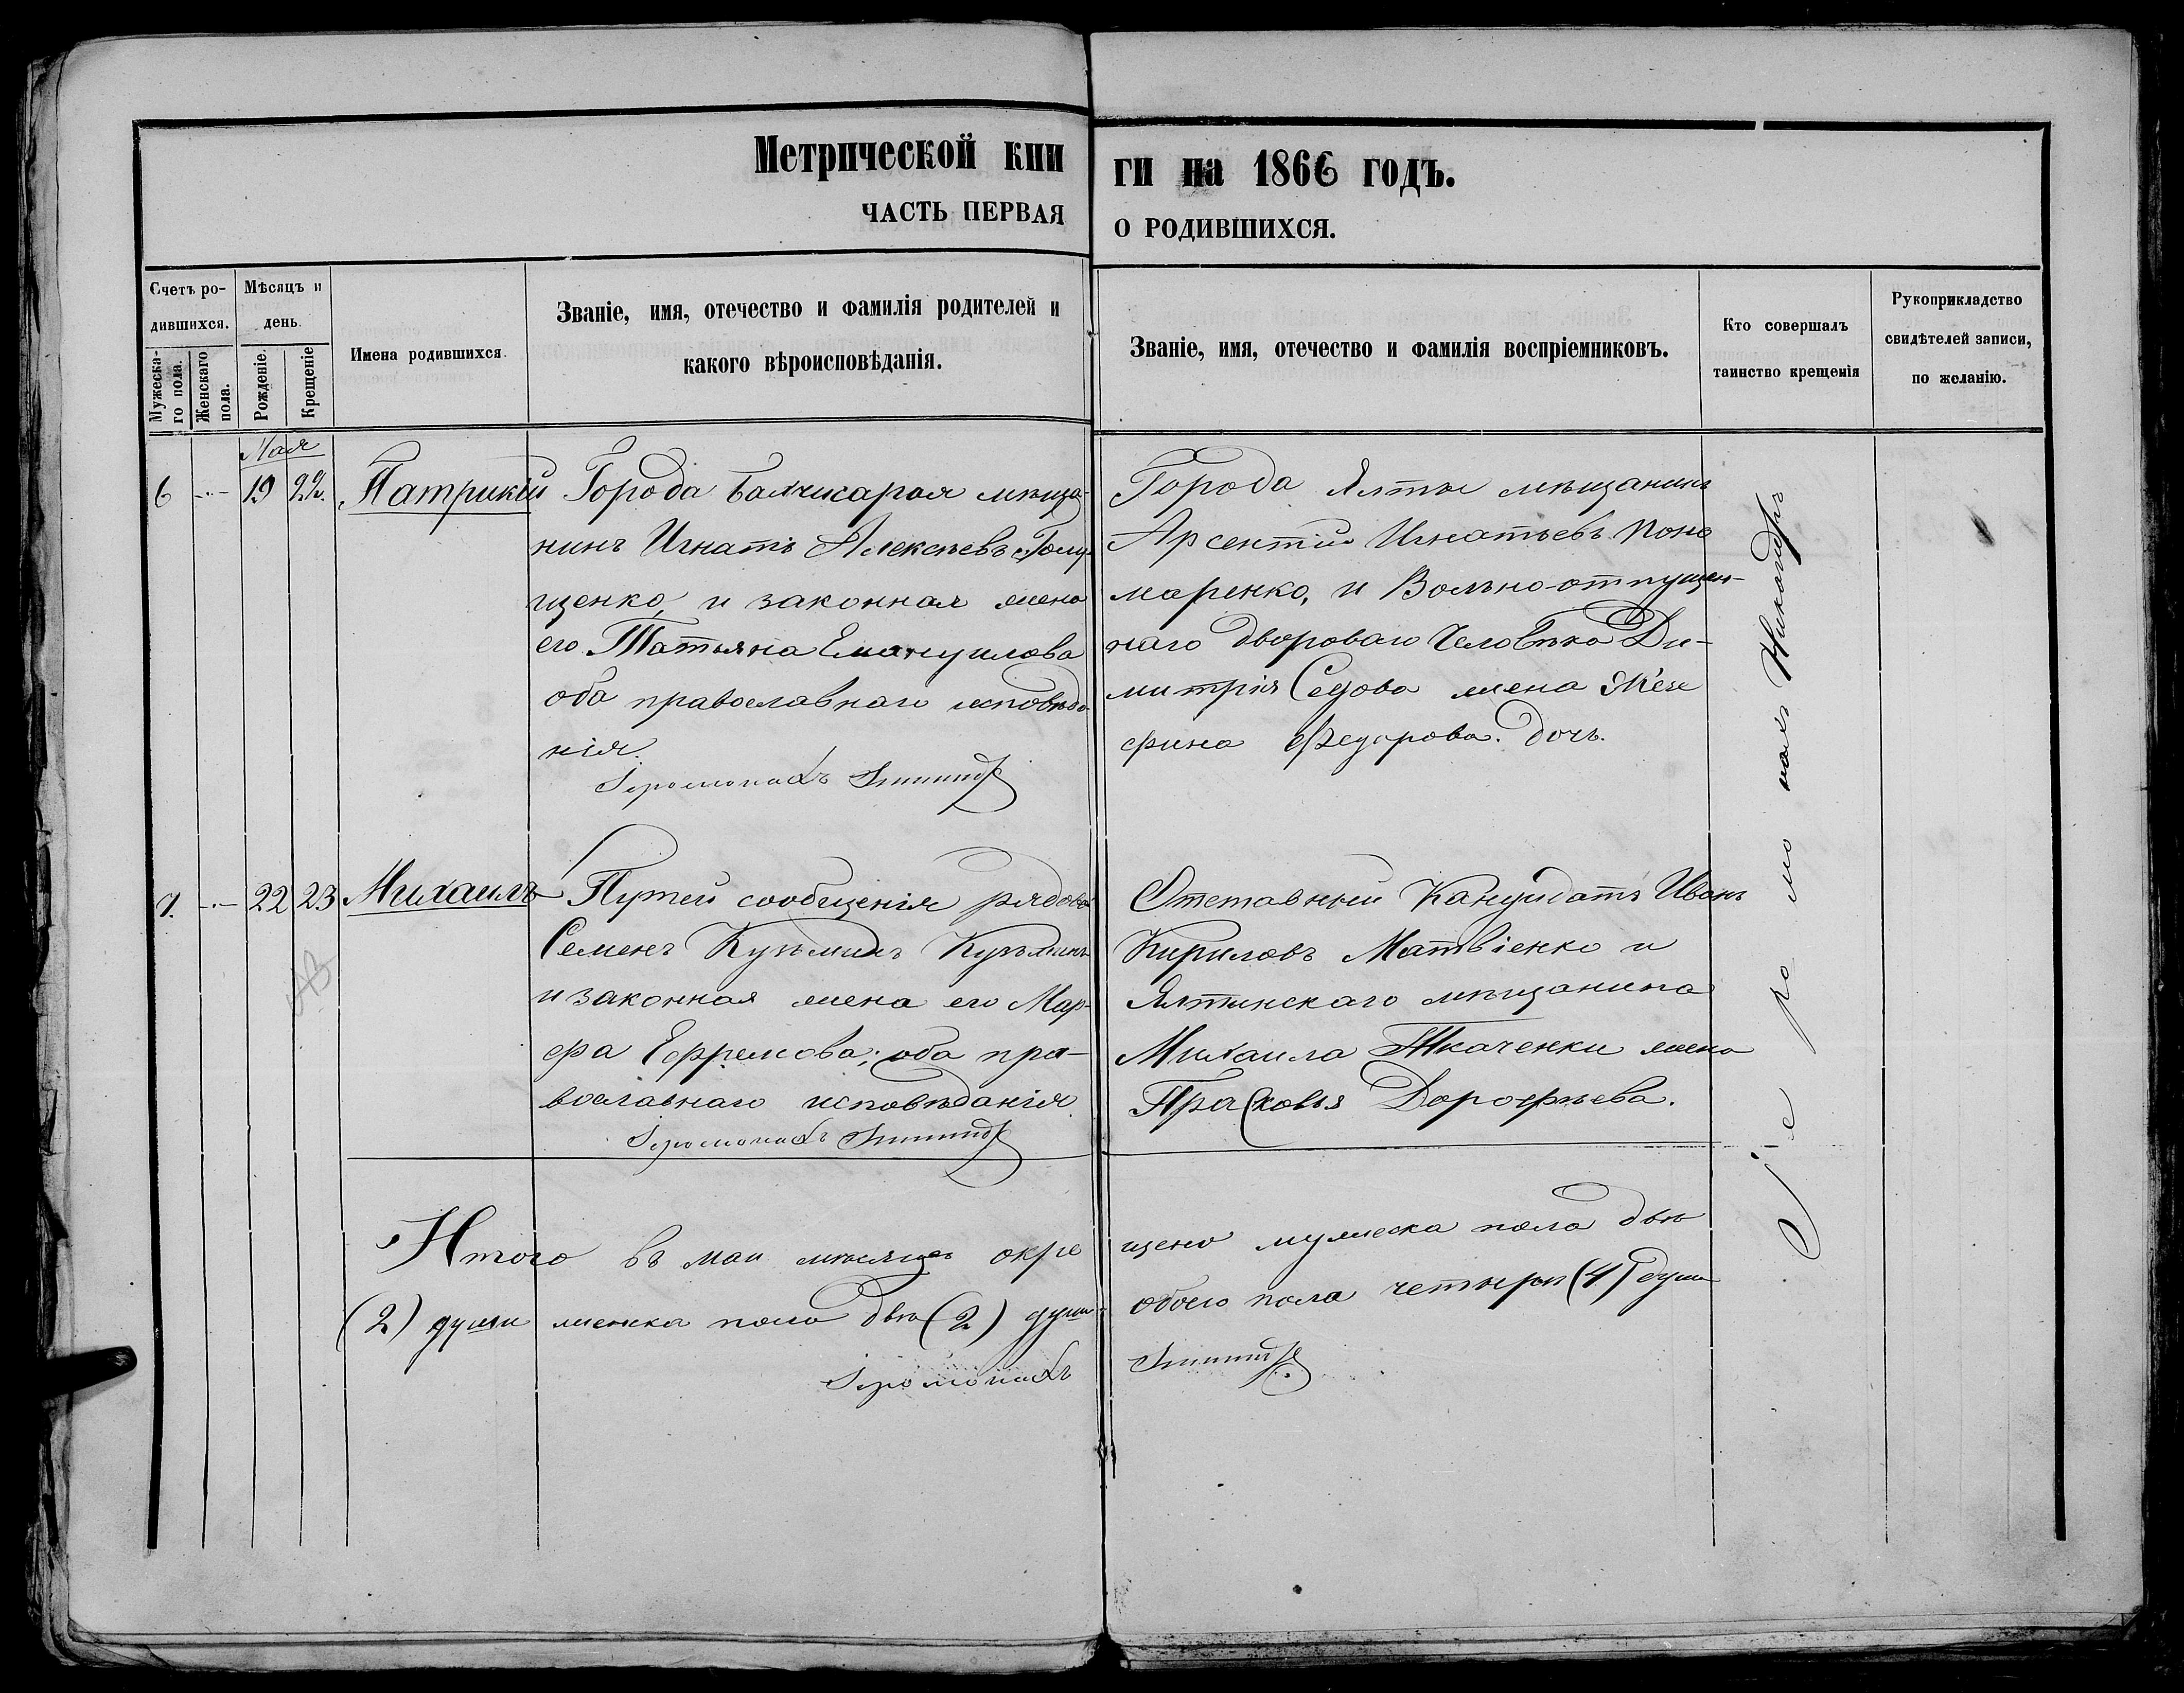 Метрической кни
ги на 1866 годъ.
ЧАСТЬ ПЕРВАЯ
О РОДИВШИХСЯ.
Счетъ ро-
дившихся.
Мужеска-
го пола.
Женскаго
пола.
Мѣсяцъ и
день.
Рожденіе.
Крещеніе
Имена родившихся.
Званіе, имя, отечество и фамилія родителей и
какого вѣроисповѣданія.
Званіе, имя, отечество и фамилія воспріемниковъ.
Кто совершалъ
таинство крещенія
Рукоприкладство
свидѣтелей записи,
по желанію.
Мая
6 19 22. Патрикій
Города мѣща-
нинъ Игнатъ Алексѣевъ
щенко, и законная жена
его Татьяна Емануилова
оба православнаго исповѣда-
нія.
Іеромонахъ
Города Ялты мѣщанинъ
Арсентій Игнатьевъ Поно
маренко, и Вольно-отпущен-
наго двороваго человѣка Ди-
митрія жена
Федорова дочь.
7. 22 23 Михаилъ
Путей сообщенія рядовой
Семенъ Кузьминъ Кузьминъ
и законная жена его Мар-
фа Ефремова; оба пра-
вославнаго исповѣданія.
Іеромонахъ
Отставный Кандидатъ Иванъ
Кириловъ Матвіенко и
Ялтинскаго мѣщанина
Михаила Ткаченки жена
Прасковья Дорофѣева.
Іеромонахъ Никандръ
Итого въ маи мѣсяцѣ окре
щено мужеска пола двѣ
(2) души женска пола двѣ (2) души
обоего пола четыри (4) души
Іеромонахъ